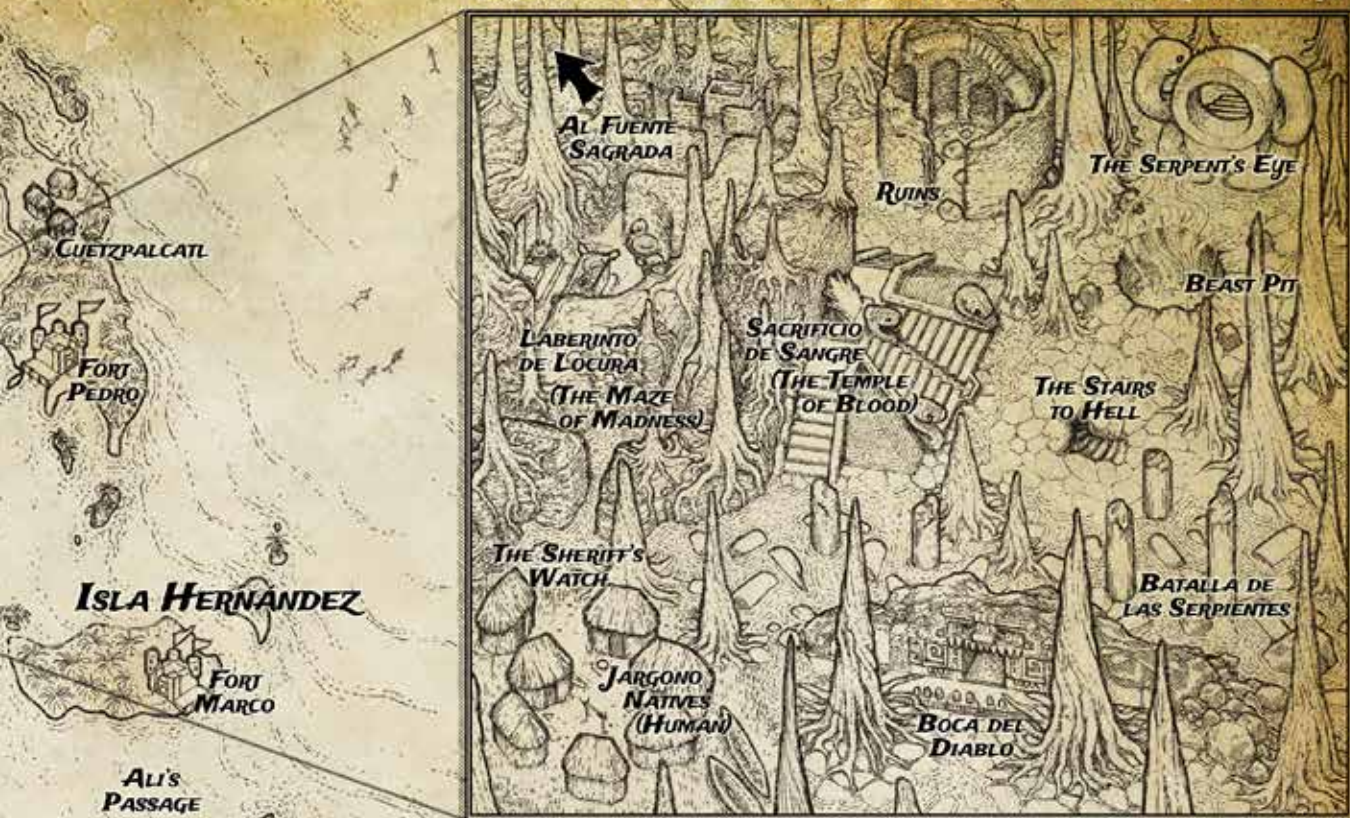 Cuetzpalcatl
Fort
Pedro
Isla Hernández
Fort
Marco
Ali's
Passage
Al Fuente
Sagrada
Ruins
The Serpent's Eye
Beast Pit
Laberinto
de Locura
(The Maze
of Madness)
Sacrificio
de Sangre
(The Temple
of Blood)
The Stairs
to Hell
The Sheriff's
Watch
Batalla de
las Serpientes
Jargono
Natives
(Human)
Boca del
Diablo